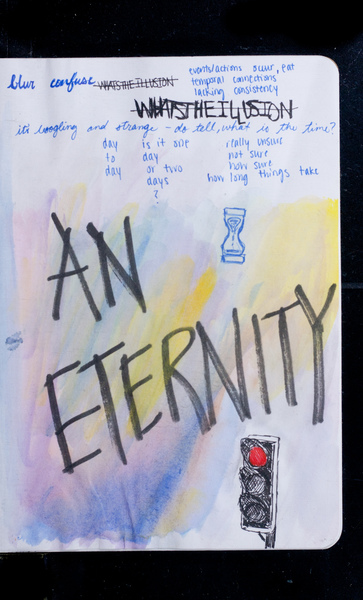 events/actions occur, eat
blur confuse WHATS THE ILLUSION temporal connections
lacking consistency
WHATS THE ILLUSION
it's woogling and strange - do tell, what is the time?
day is it one really unsure
to day not sure
day or two how sure
days how long things take
?
AN
ETERNITY